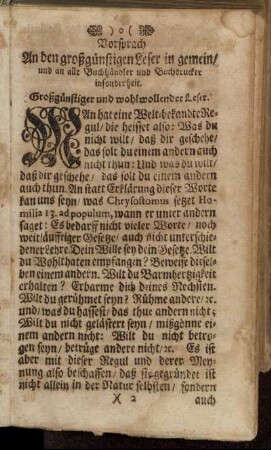 )o(
Vorsprach
An den großgünstigen Leser in gemein/
und an alle Buchhändler und Buchdrucker
insonderheit.
Großgünstiger und wohlwollender Leser.
MAn hat eine Welt-bekandte Re-
gul/ die heisset also: Was du
nicht wilt/ daß dir geschehe/
das solt du einem andern auch
nicht thun: Und was du wilt/
daß dir geschehe/ das solt du einem andern
auch thun. An statt Erklärung dieser Worte
kan uns seyn/ was Chrysostomus setzet Ho-
milia 13. ad populum, wann er unter andern
saget: Es bedarff nicht vieler Worte/ noch
weitläufftiger Gesetze/ auch nicht unterschie-
dener Lehre. Dein Wille sey dein Gesetze. Wilt
du Wohlthaten empfangen? Beweise diesel-
ben einem andern. Wilt du Barmhertzigkeit
erhalten? Erbarme dich deines Nechsten.
Wilt du gerühmet seyn? Rühme andere/ ꝛc.
und/ was du hassest/ das thue andern nicht;
Wilt du nicht gelästert seyn/ mißgönne ei-
nem andern nicht: Wilt du nicht betro-
gen seyn/ betrüge andere nicht/ ꝛc. Es ist
aber mit dieser Regul und derer Mey-
nung also beschaffen/ daß sie gegründet ist
nicht allein in der Natur selbsten/ sondern
X 2 auch